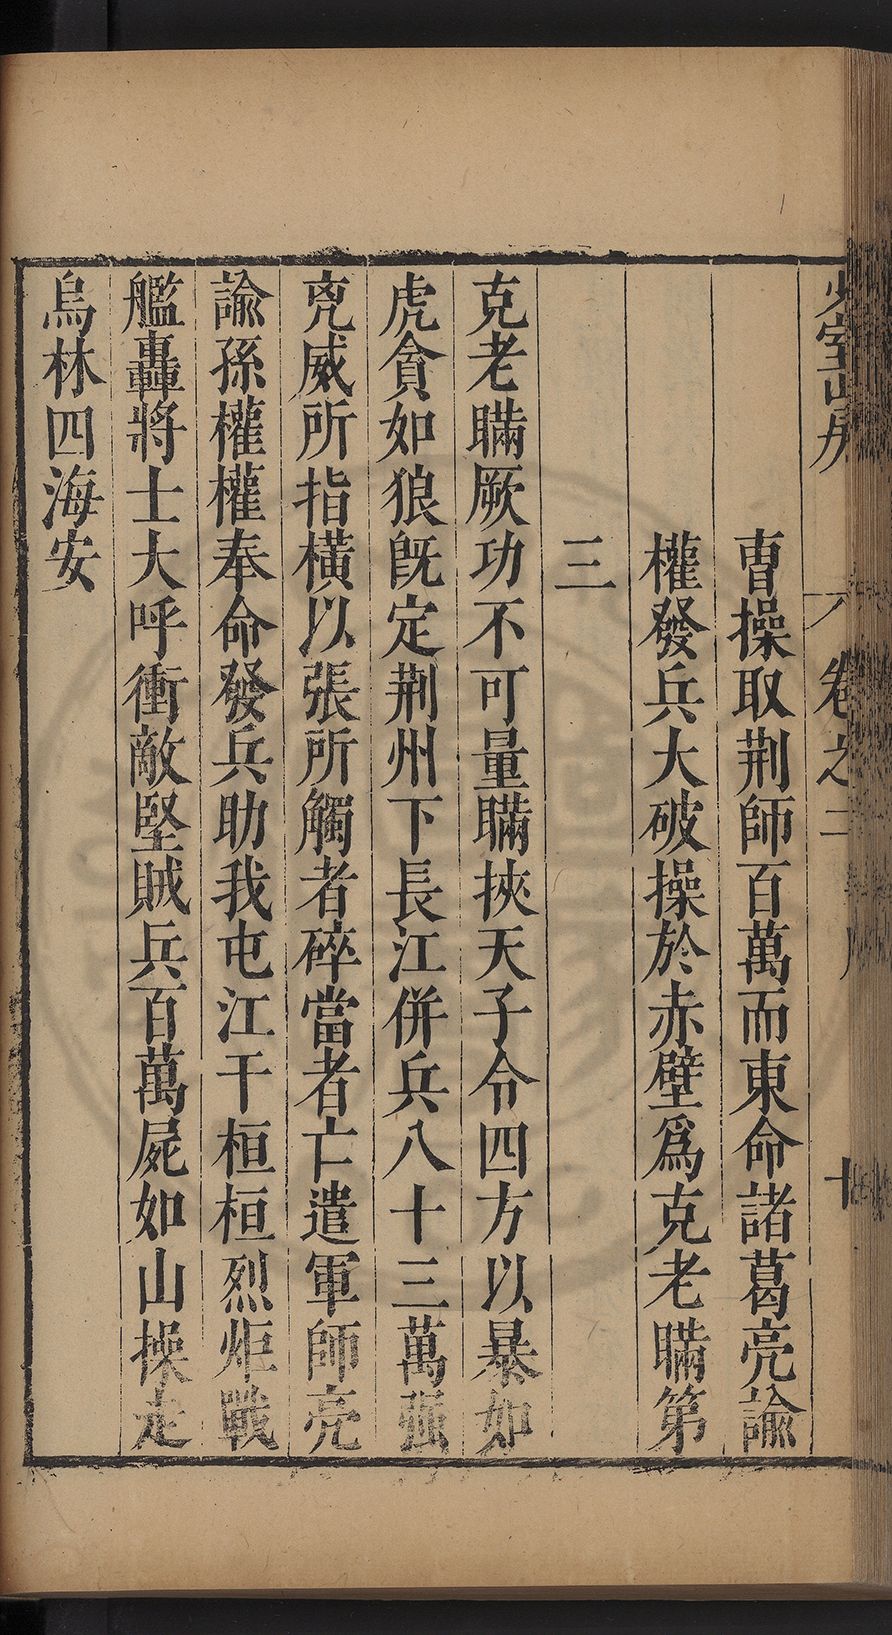 少室山房 卷之二 十
曹操取荆師百萬而東命諸葛亮諭
權發兵大破操於赤壁爲克老瞞第
三
克老瞞厥功不可量瞞挾天子令四方以暴如
虎貪如狼旣定荆州下長江併兵八十三萬强
兇威所指橫以張所觸者碎當者亡遣軍師亮
諭孫權權奉命發兵助我屯江干桓桓烈炬戰
艦轟將士大呼衝敵堅賊兵百萬屍如山操走
烏林四海安